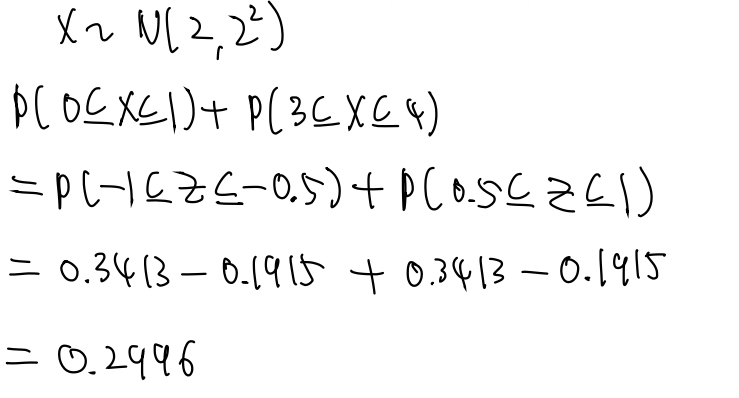 X ~ N(2, 2²)
P(0 ≤ X ≤ 1) + P(3 ≤ X ≤ 4)
= P(-1 ≤ Z ≤ -0.5) + P(0.5 ≤ Z ≤ 1)
= 0.3413 - 0.1915 + 0.3413 - 0.1915
= 0.2996